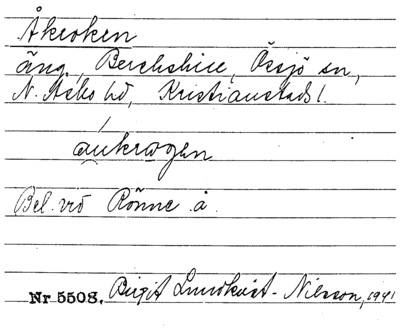 Åkroken
äng, Berchshill, Össjö sn,
N. Åsbo hd, Kristianstads l.
áukrogen
Bel. vid Rönne å.
Nr 5508. Birgit Lundkvist-Nilsson, 1941